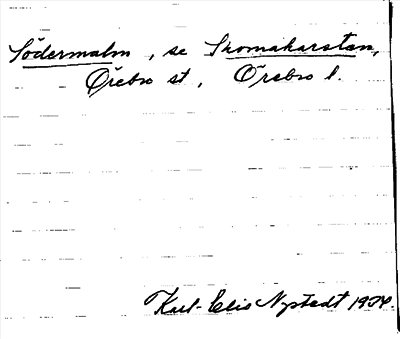 Södermalm, se Skomakarstan,
Örebro st, Örebro l.
Karl-Elis Nystedt 1934.